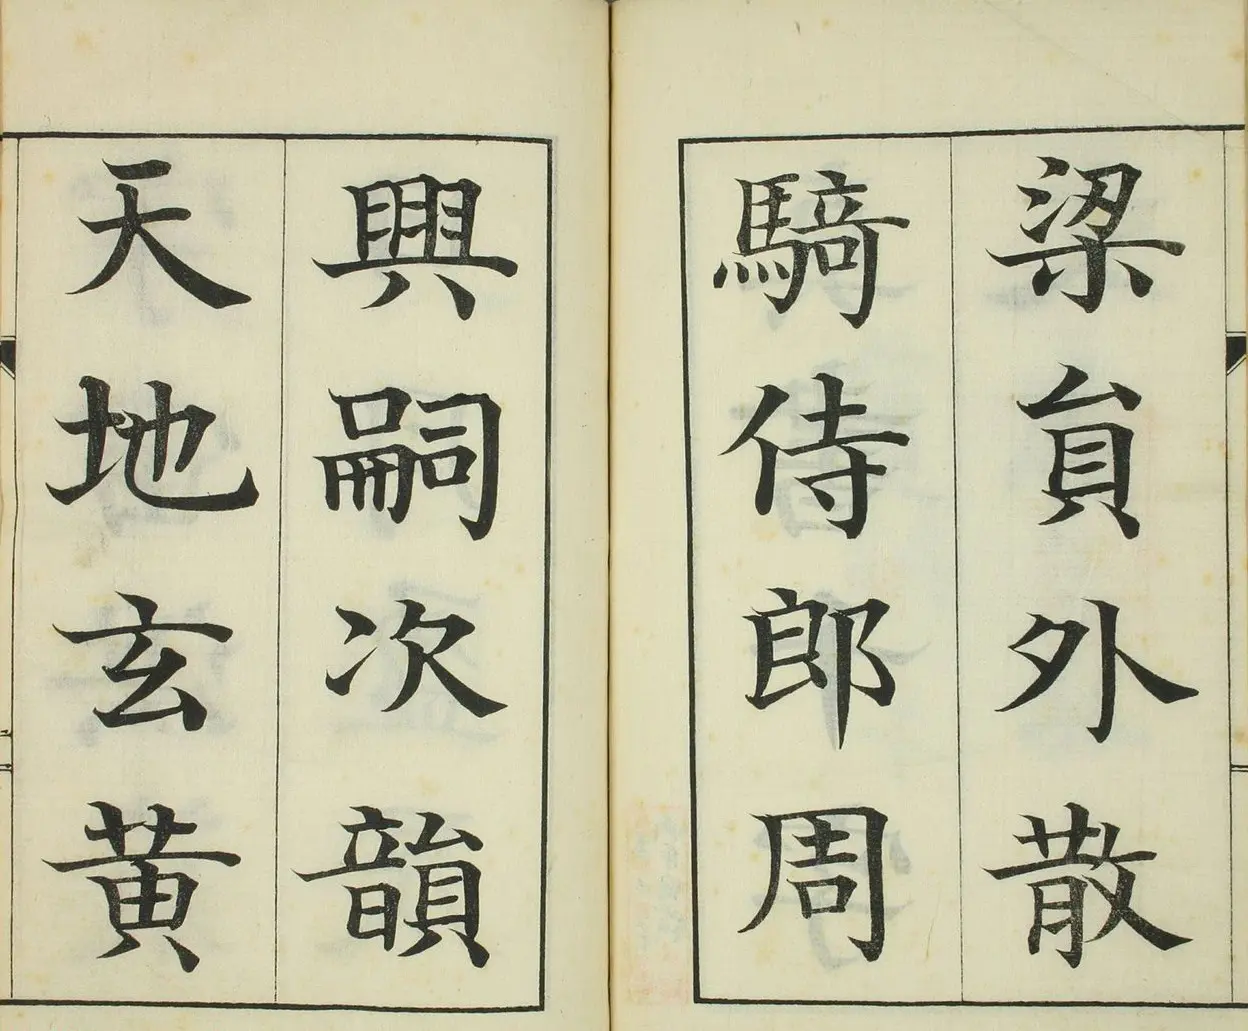 梁員外散
騎侍郎周
興嗣次韻
天地玄黃